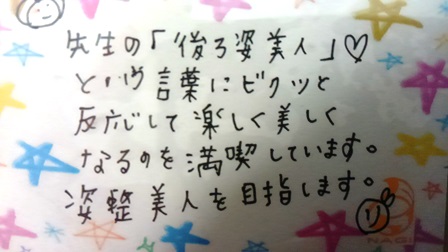 先生の「後ろ姿美人」♡
という言葉にビクッと
反応して楽しく美しく
なるのを満喫しています。
姿整美人を目指します。
り
NAGI